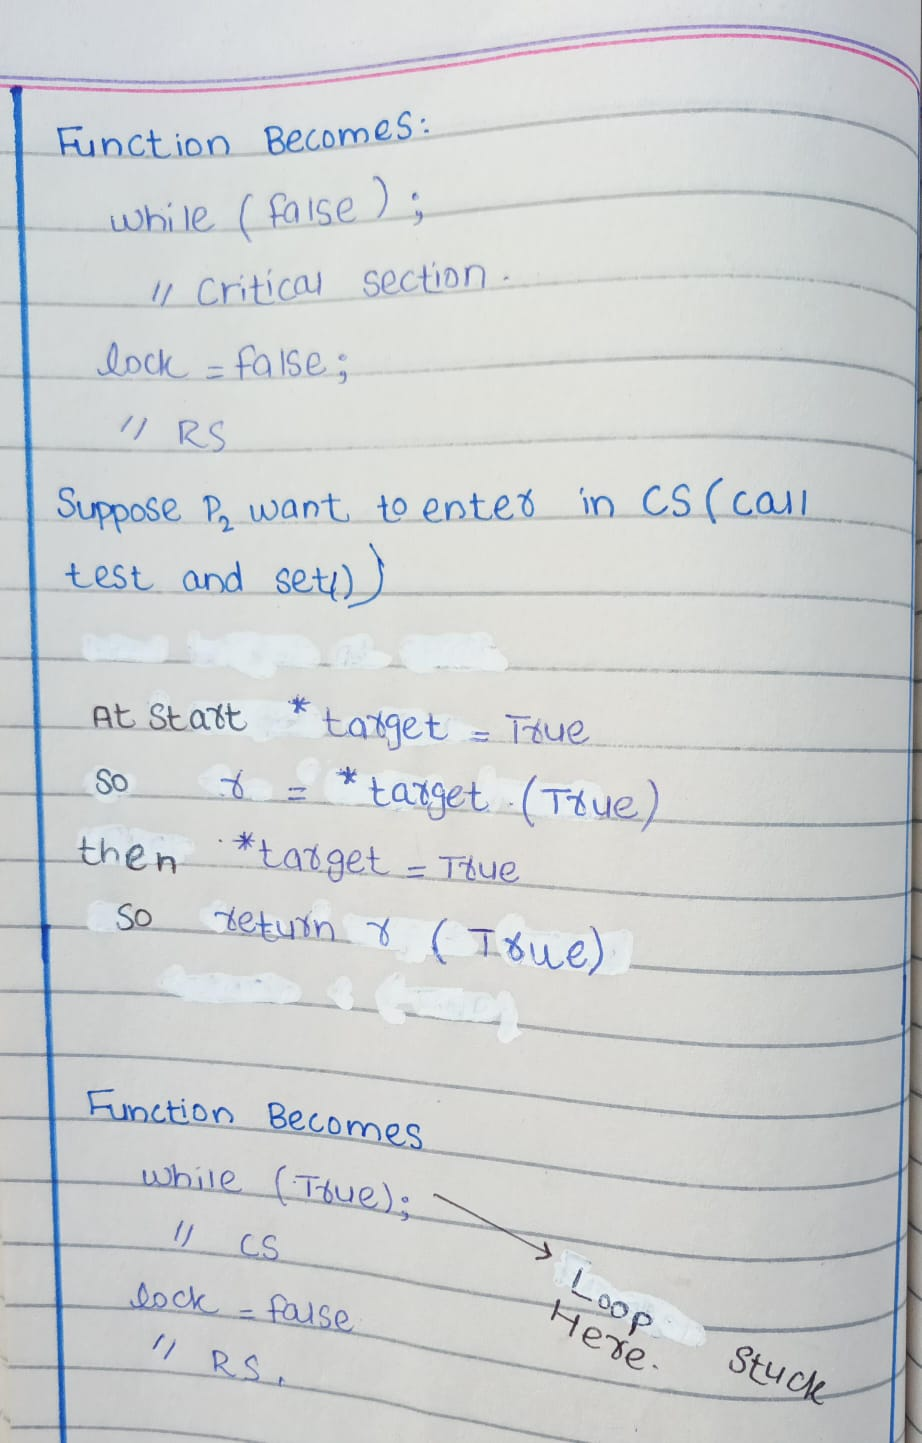 Function Becomes:
while (false);
// Critical section.
lock = false;
// RS
Suppose P₂ want to enter in CS (call
test and set())
At Start *target = True
so r = *target (True)
then *target = True
so return r (True)
Function Becomes
while (True);
// CS
lock = false
// RS.
Loop Stuck
Here.